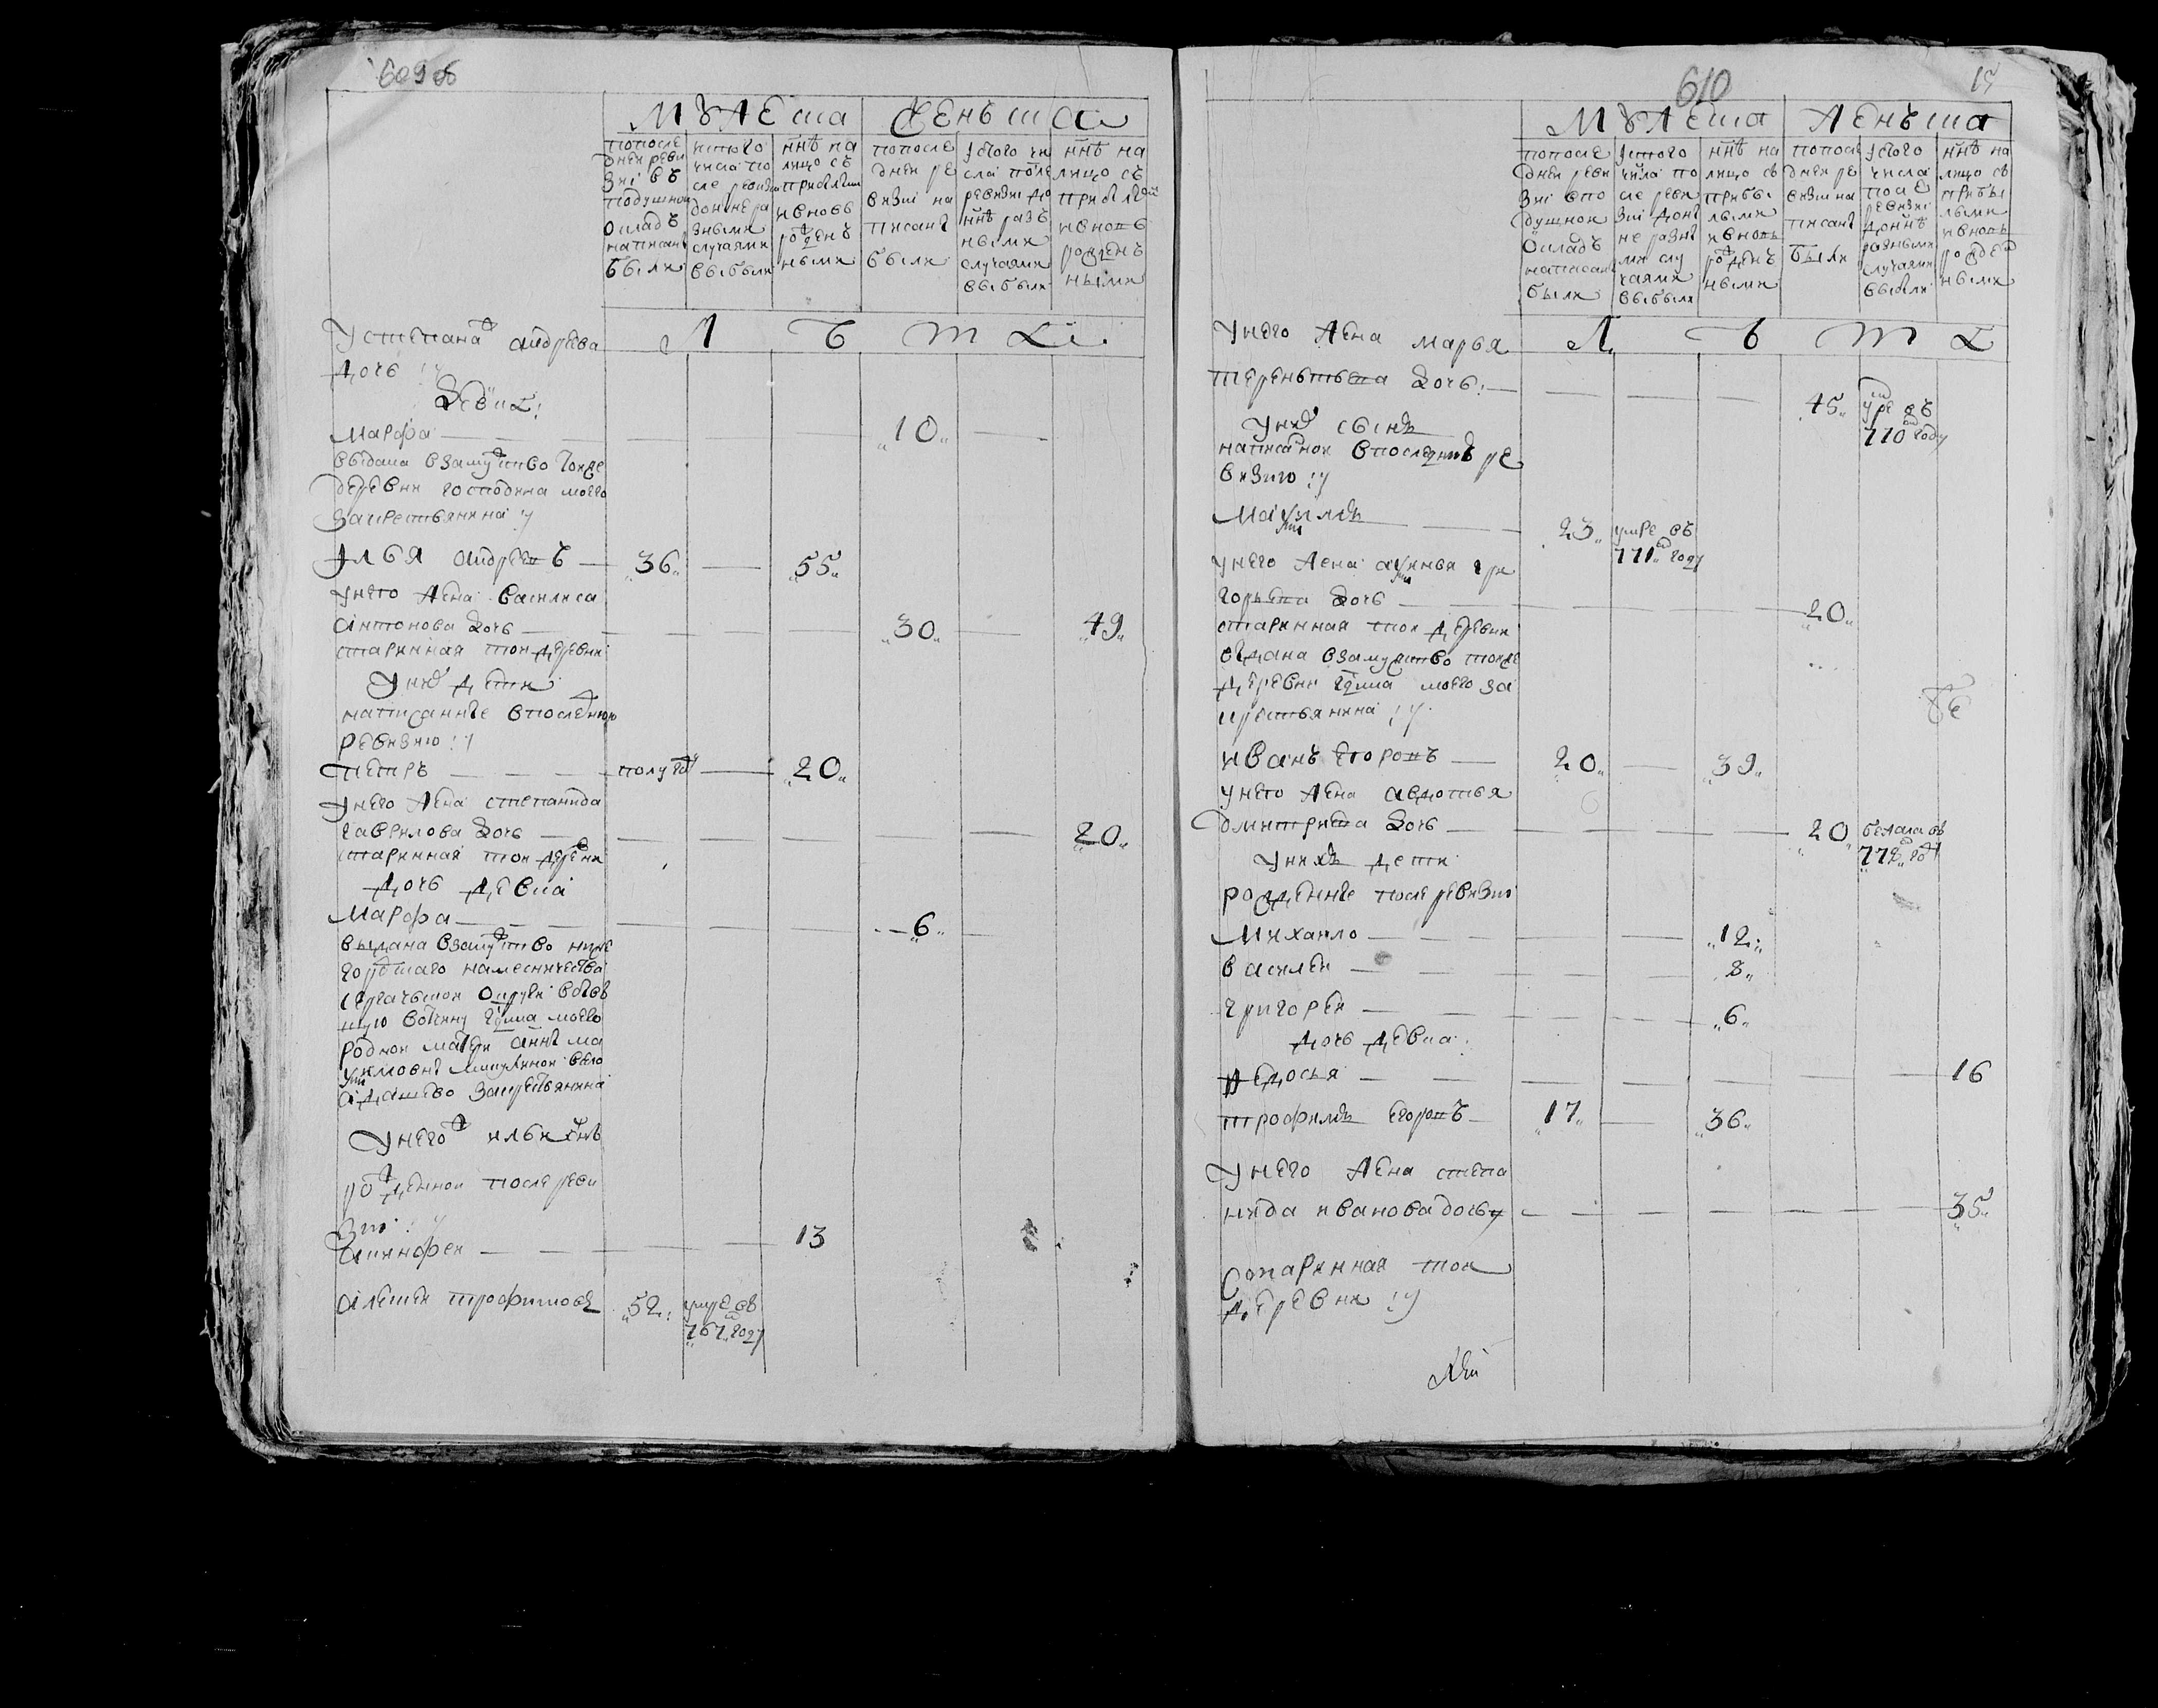 609 об
Мужеска Женска
попосле
дней реви
зиі въ
подушной
окладъ
написаны
были
истого
числа по
сле ревизіи
донне ра
зными
случаями
выбыли
ннѣ на
лицо съ
прибылыми
ивновь
рожденъ
ными
попосле
дней ре
визиі на
писаны
были
Ѕ
истого чи
сла после
ревизиі до
ннѣ разъ
ными
случаями
выбыли
ннѣ на
лицо съ
прибылыми
ивновь
рожденъ
ными
Л Ѣ Т А
Устепана андреева
дочь
девка
Марфа 10
выдана взамужство тойже
деревни господина моего
закрестьянина
Илья андреевъ 36 55
унего жена василиса
антонова дочь 30 49
старинная той деревни
Уних дети
написанные впоследнюю
ревизию
петръ полугоду 20
унего жена степанида
гаврилова дочь 20
старинная той деревни
дочь девка
Марфа 6
выдана взамужство ниже
городскаго наместничества
сергачьской округи
вотчину гдна моего
родной матери анны ма
ксимовны
закрестьянина
Унего ильи сынъ
рожденной после реви
зиі
Ксинофей 13
алексей трофимовъ 52 умре въ
767 году
610 15
Мужеска Женска
попосле
дней реви
зиі впо
душной
окладъ
написаны
были
истого
числа по
сле реви
зиі дон
не разны
ми слу
чаями
выбыли
ннѣ на
лицо съ
прибы
лыми
ивновь
рожденъ
ными
попосле
дней ре
визиі на
писаны
были
истого
числа
после
ревизиі
доннѣ
разными
случаями
выбыли
ннѣ на
лицо съ
прибы
лыми
ивновь
рожден
ными
Л Ѣ Т А
унего жена марья
терентьева дочь 45 умре въ
770 году
Уних сынъ
написанной впоследнюю ре
визию
Максимъ 23 умре въ
771 году
унего жена аксинья гри
горьева дочь 20
старинная той деревни
выдана взамужство тойже
деревни гдна моего за
крестьянина
иванъ егоровъ 20 39
унего жена авдотья
дмитриева дочь 20 бежала въ
778 году
Уних дети
рожденные после ревизиі
Михайло 12
василей 8
григорей 6
дочь девка
Федосья 16
трофимъ егоровъ 17 36
Унего жена степа
нида иванова дочь 35
Старинная той
деревни